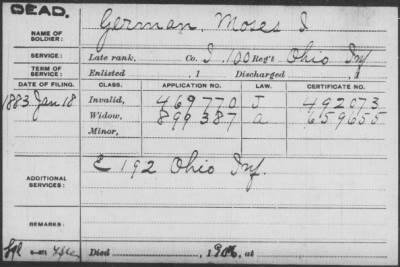 DEAD.
NAME OF SOLDIER: German, Moses I.
SERVICE: Late rank, Co. I, 100 Reg't Ohio Inf
TERM OF SERVICE: Enlisted , 1 Discharged , 1
DATE OF FILING. CLASS. APPLICATION NO. LAW. CERTIFICATE NO.
1883 Jan 18 Invalid, 469770 J 492073
Widow, 899387 a 659655
Minor,
ADDITIONAL SERVICES: E 192 Ohio Inf.
REMARKS:
Died , 190 , at